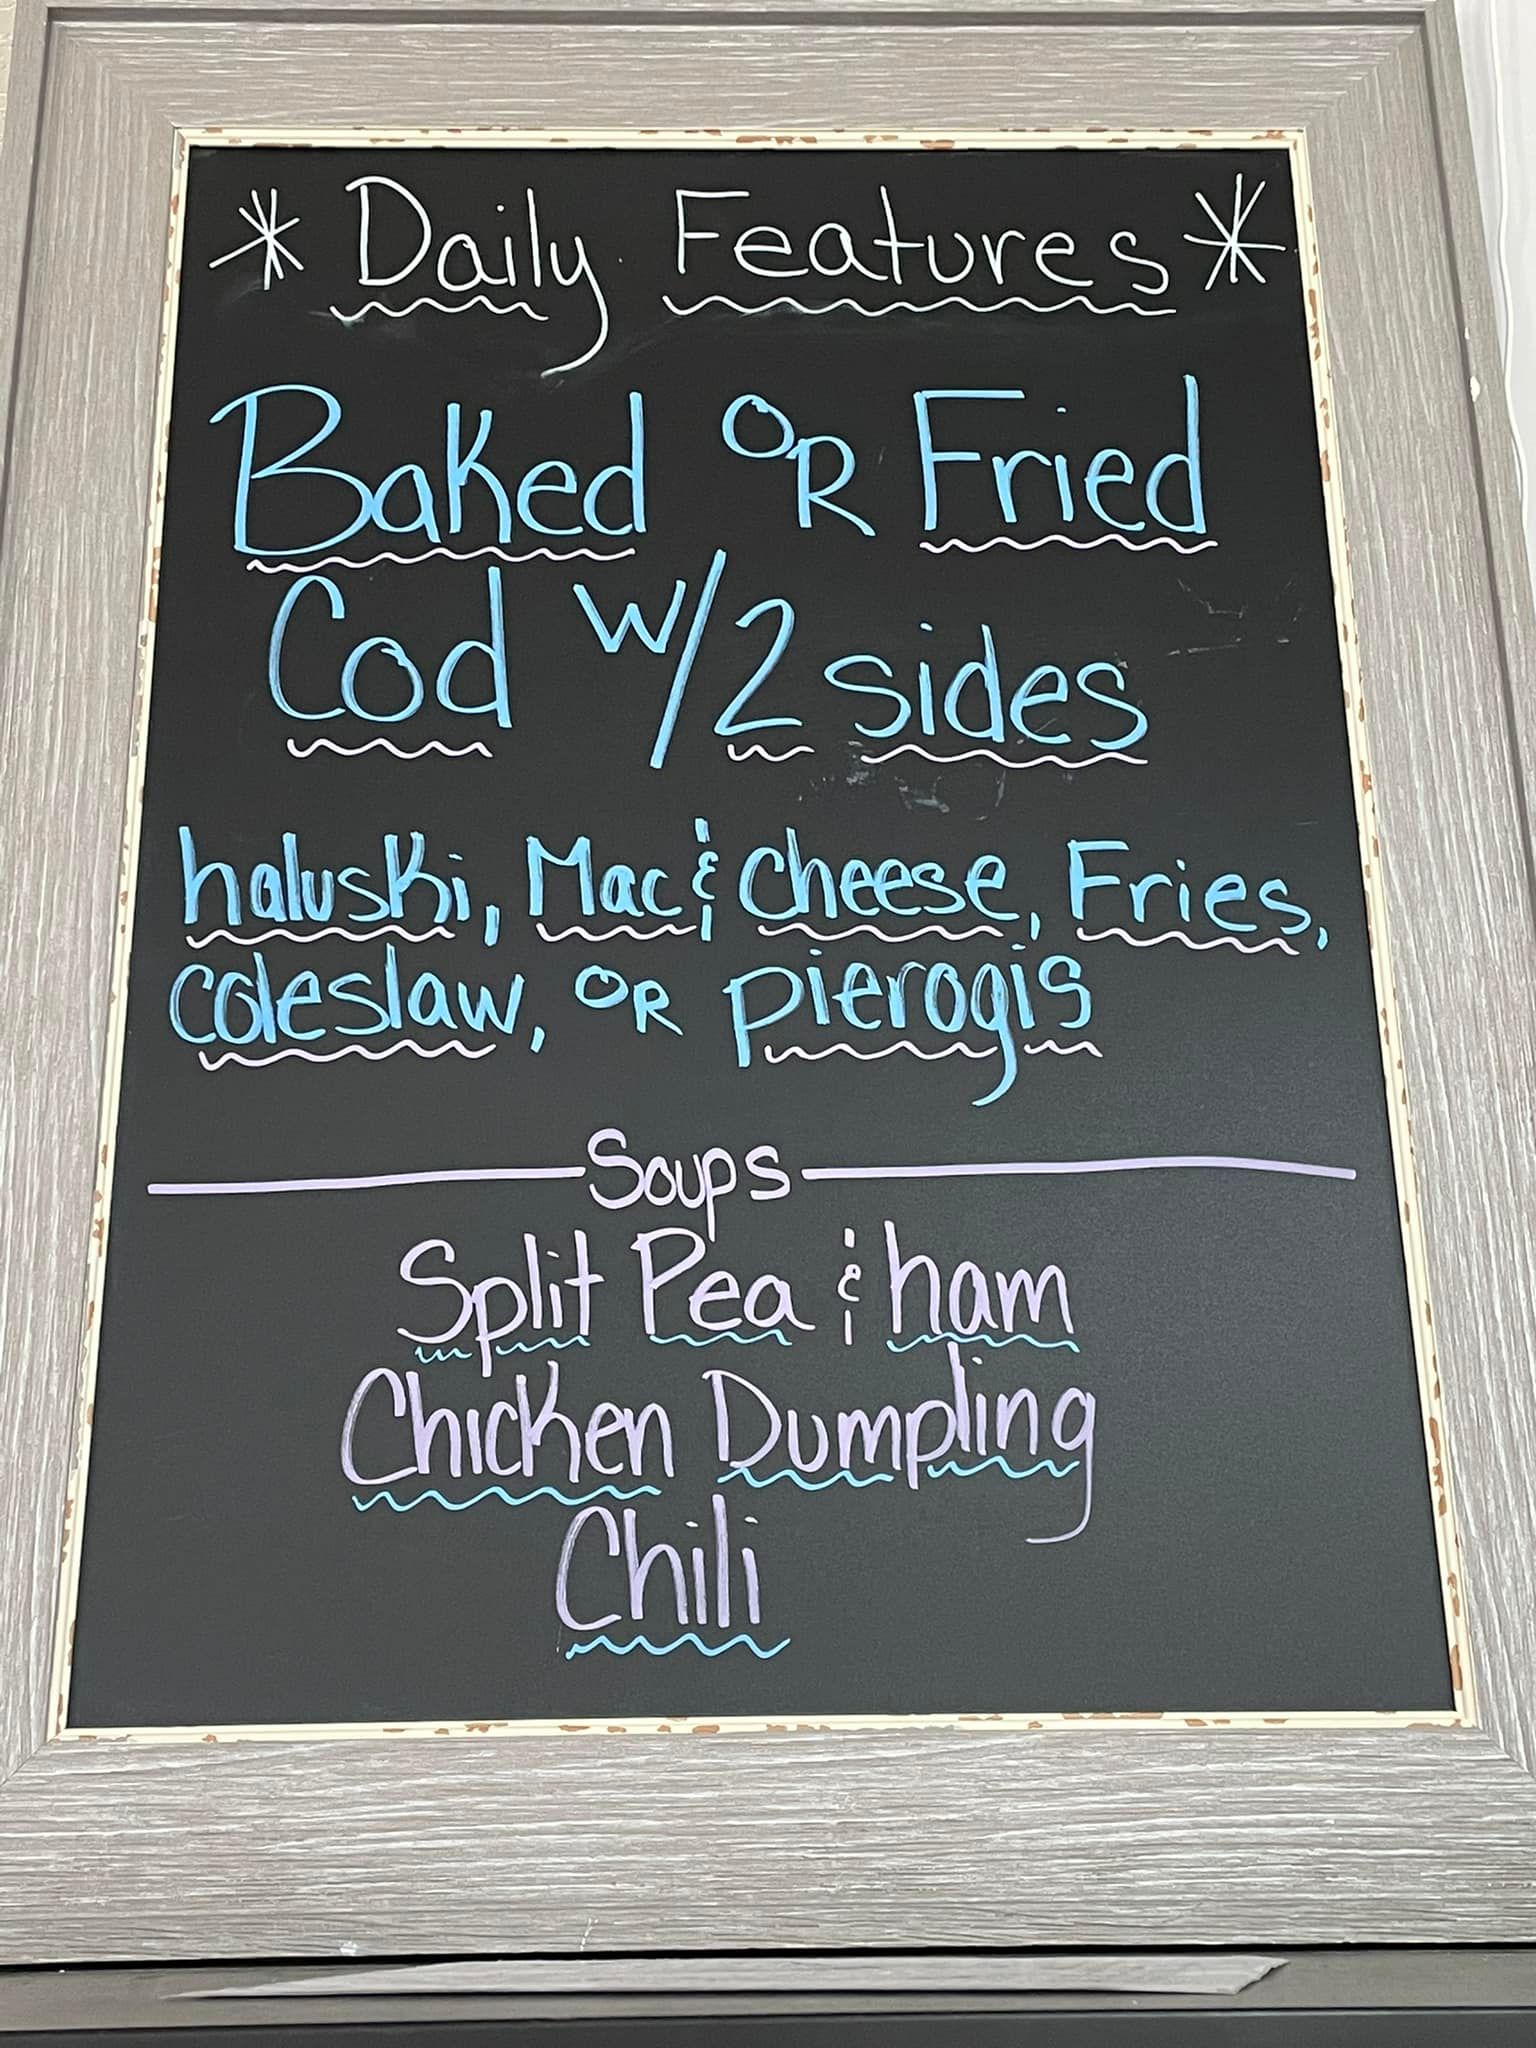 * Daily Features *
Baked OR Fried
Cod w/2 sides
haluski, Mac & cheese, Fries,
coleslaw, OR pierogis
Soups
Split Pea & ham
Chicken Dumpling
Chili